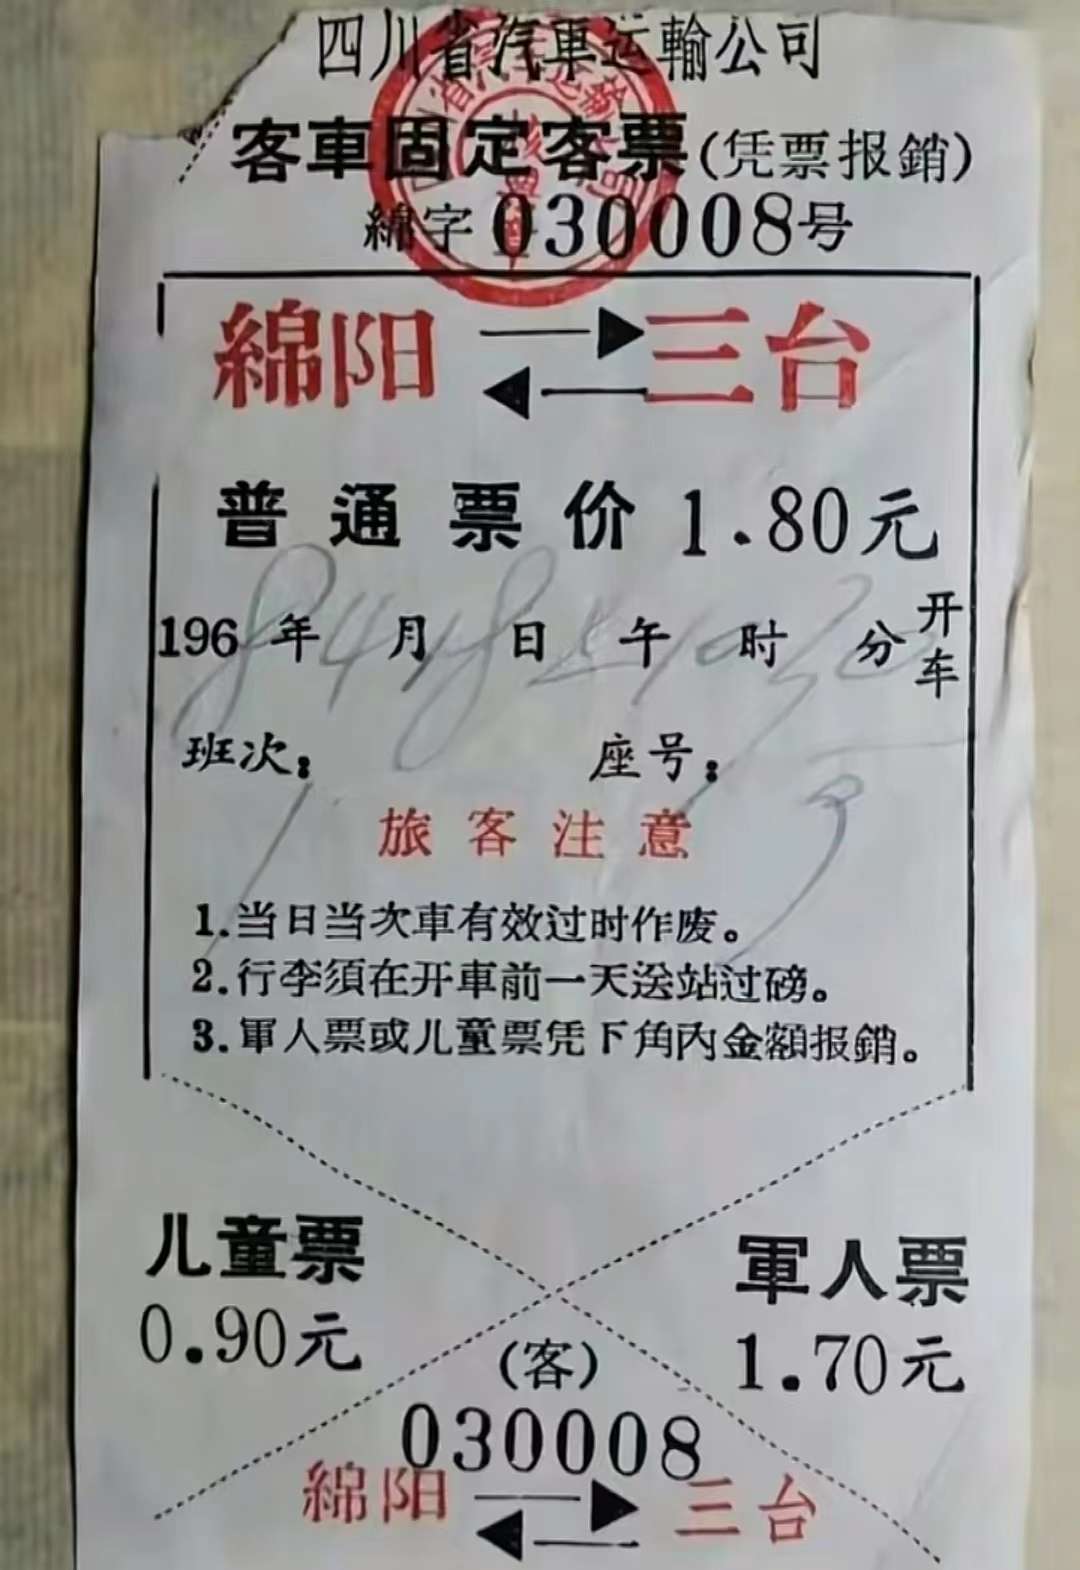 四川省汽車运輸公司
客車固定客票(凭票报銷)
綿字 030008号
綿阳 三台
普通票价 1.80元
1968年4月18日上午10时32分开车
班次: 1 座号: 3
旅客注意
1.当日当次車有效过时作废。
2.行李須在开車前一天送站过磅。
3.軍人票或儿童票凭下角內金額报銷。
儿童票
0.90元
軍人票
1.70元
(客)
030008
綿阳 三台